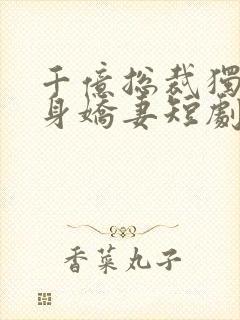 千億總裁獨
身嬌妻短劇
香菜丸子